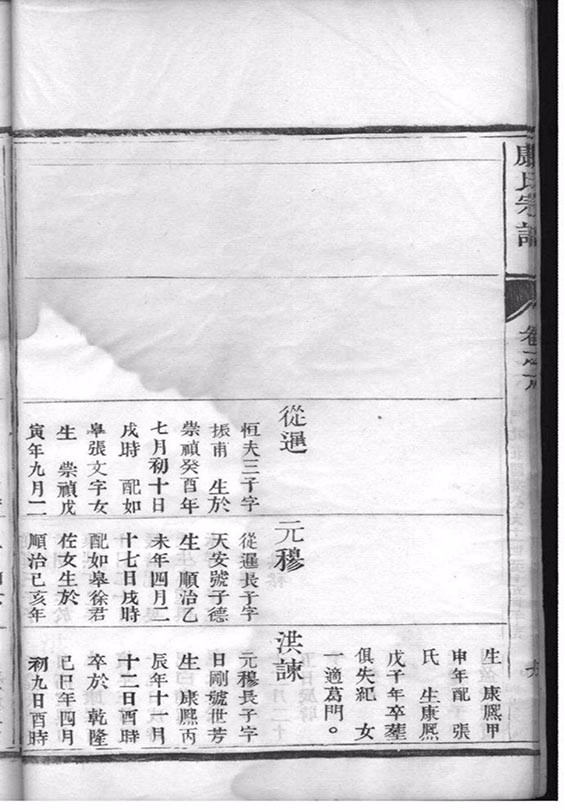 康氏宗譜
卷之八
生 康熈甲
申年配 張
氏 生康熈
戊子年卒塟
俱失紀 女
一適葛門。
從暹
恒夫三子字
振甫 生於
崇禎癸酉年
七月初十日
戌時 配如
皋張文字女
生 崇禎戊
寅年九月二
元穆
從暹長子字
天安號子德
生 順治乙
未年四月二
十七日戌時
配如皋徐君
佐女生於
順治己亥年
洪諫
元穆長子字
日剛號世芳
生 康熈丙
辰年十一月
十二日酉時
卒於乾隆
己巳年四月
初九日酉時